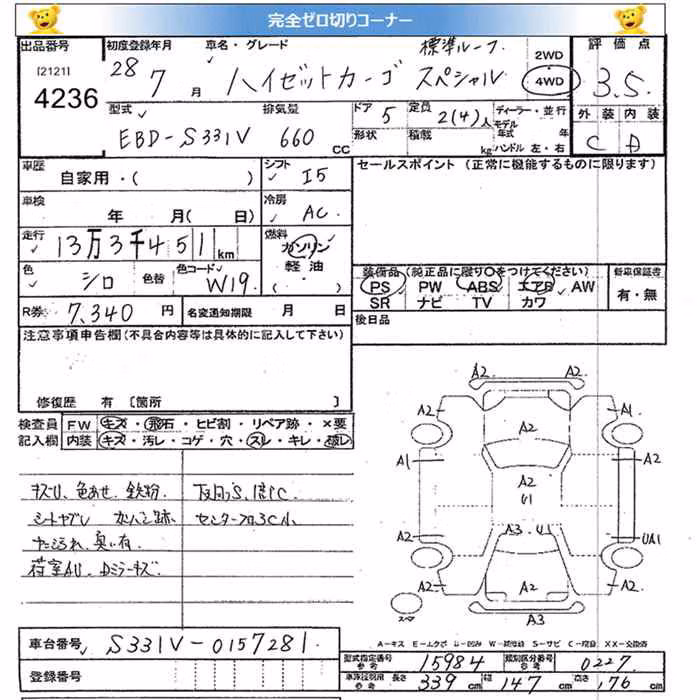 完全ゼロ切りコーナー
出品番号 [2121] 4236
初度登録年月 28 7 月
車名・グレード 標準ルーフ
ハイゼットカーゴ スペシャル
2WD 4WD
評価点 3.5
外装 内装
C D
型式 EBD-S331V
排気量 660 cc
ドア 5
形状
定員 2(4)人
積載 kg
ディーラー・並行
モデル年式 年
ハンドル 左・右
車歴 自家用・( )
シフト I5
セールスポイント (正常に機能するものに限ります)
車検 年 月( 日)
冷房 AC
走行 13万3千451km
燃料 ガソリン
軽油
( ・ )
色 シロ 色替 色コード W19
装備品 (純正品に限り○をつけてください)
PS PW ABS エアB AW
SR ナビ TV カワ
新車保証書
有・無
R券 7,340 円 名変通知期限 月 日
後日品
注意事項申告欄(不具合内容等は具体的に記入して下さい)
修復歴 有 [箇所 ]
検査員記入欄
FW キズ・飛石・ヒビ割・リペア跡・×要
内装 キズ・汚レ・コゲ・穴・スレ・キレ・破レ
キズU、色あせ、鉄粉
シートヤブレ
センターフロアC小
臭い有
荷室AU、Dミラーキズ
A2 A2
A2 A1
A2
A1 A2
A2
U1
A3 U1
A2 UA1
A2 A2 A2
A3
スペア
A-キズ E-エクボ U-凹み W-補修跡 S-サビ C-腐食 XX-交換済
車台番号 S331V-0157281
登録番号
型式指定番号 参考 15984 類別区分番号 参考 0227
車検証referenced 長さ 339 cm 幅 147 cm 高さ 176 cm